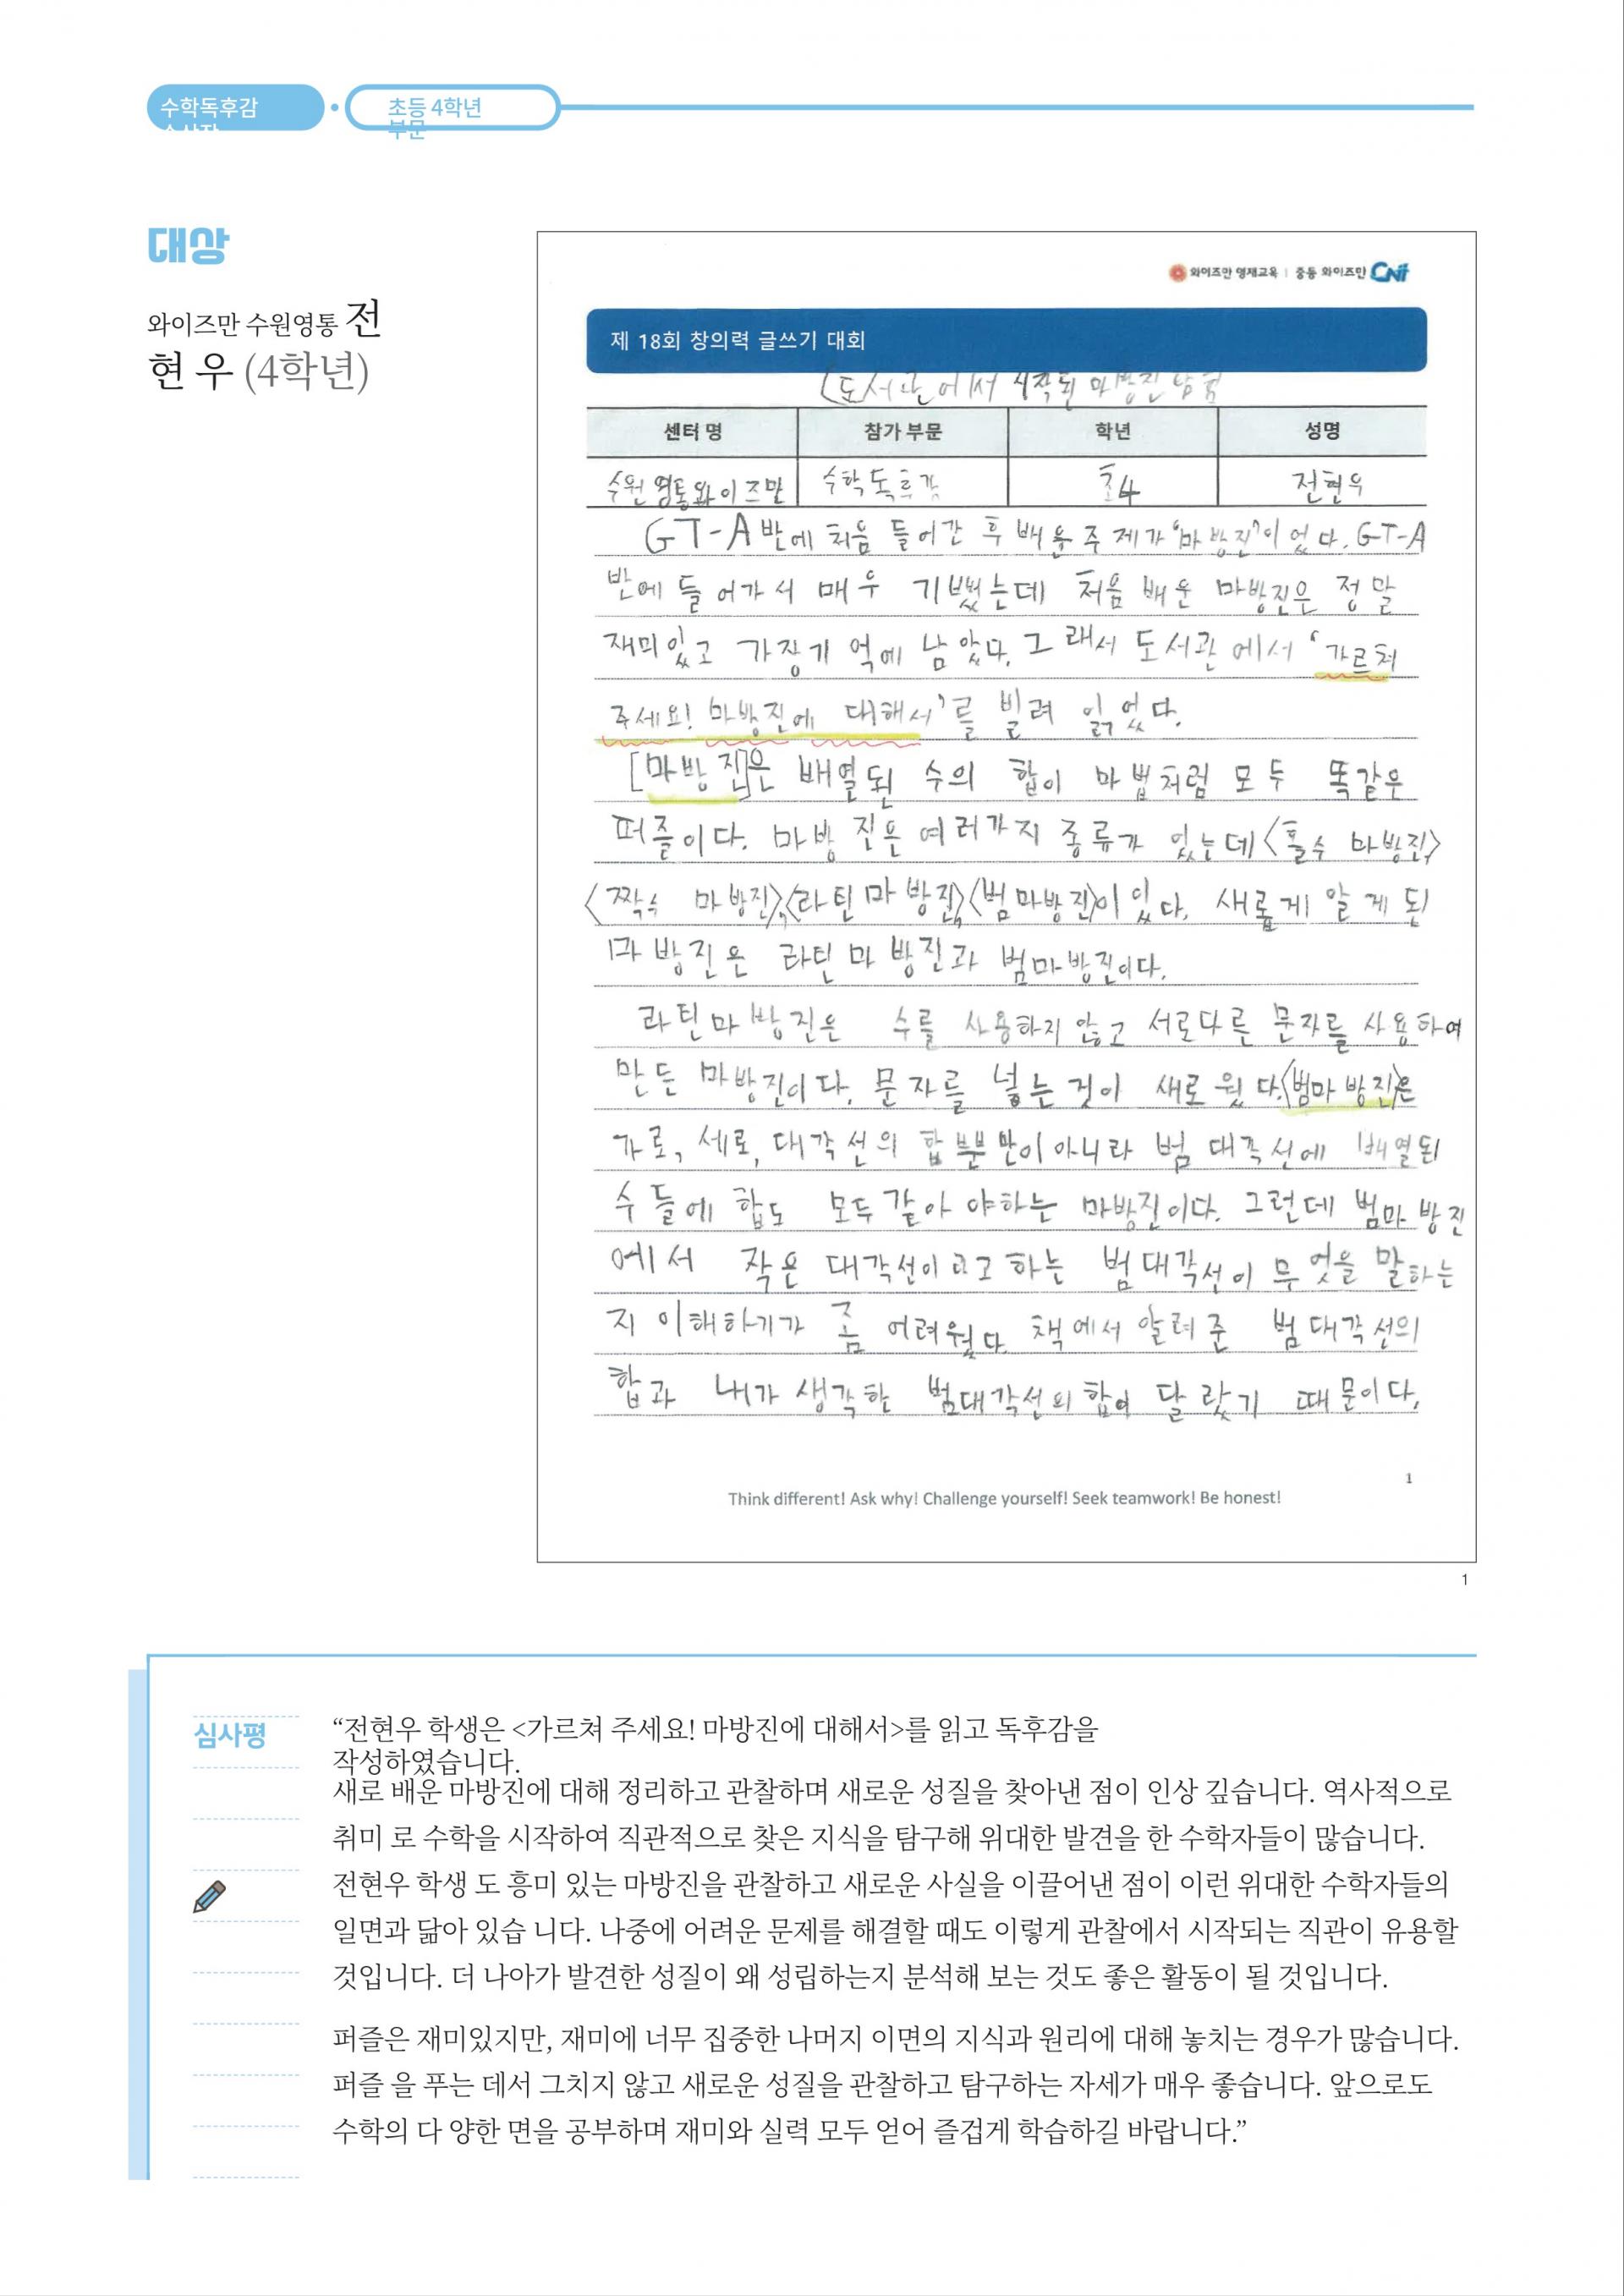 수학독후감
수상작
초등 4학년
부문
대상
와이즈만 수원영통 전
현 우 (4학년)
와이즈만 영재교육 | 중등 와이즈만 CNI
제 18회 창의력 글쓰기 대회
도서관에서 시작된 마방진
센터 명 참가 부문 학년 성명
수원영통와이즈만 수학독후감 초4 전현우
GT-A반에 처음 들어간 후 배운 주제가 '마방진'이었다. GT-A
반에 들어가서 매우 기뻤는데 처음 배운 마방진은 정말
재미있고 가장 기억에 남았다. 그래서 도서관에서 '가르쳐
주세요! 마방진에 대해서'를 빌려 읽었다.
[마방진]은 배열된 수의 합이 마법처럼 모두 똑같은
퍼즐이다. 마방진은 여러가지 종류가 있는데 <홀수 마방진>
<짝수 마방진>,<라틴마방진>,<범마방진>이 있다. 새롭게 알게 된
마방진은 라틴마방진과 범마방진이다.
라틴마방진은 수를 사용하지 않고 서로다른 문자를 사용하여
만든 마방진이다. 문자를 넣는 것이 새로웠다. <범마방진>은
가로, 세로, 대각선의 합 뿐만이 아니라 범 대각선에 배열된
수들에 합도 모두 같아야하는 마방진이다. 그런데 범마방진
에서 작은 대각선이라고 하는 범대각선이 무엇을 말하는
지 이해하기가 좀 어려웠다. 책에서 알려준 범대각선의
합과 내가 생각한 범대각선의 합이 달랐기 때문이다.
1
Think different! Ask why! Challenge yourself! Seek teamwork! Be honest!
1
심사평
“전현우 학생은 <가르쳐 주세요! 마방진에 대해서>를 읽고 독후감을
작성하였습니다.
새로 배운 마방진에 대해 정리하고 관찰하며 새로운 성질을 찾아낸 점이 인상 깊습니다. 역사적으로
취미 로 수학을 시작하여 직관적으로 찾은 지식을 탐구해 위대한 발견을 한 수학자들이 많습니다.
전현우 학생 도 흥미 있는 마방진을 관찰하고 새로운 사실을 이끌어낸 점이 이런 위대한 수학자들의
일면과 닮아 있습 니다. 나중에 어려운 문제를 해결할 때도 이렇게 관찰에서 시작되는 직관이 유용할
것입니다. 더 나아가 발견한 성질이 왜 성립하는지 분석해 보는 것도 좋은 활동이 될 것입니다.
퍼즐은 재미있지만, 재미에 너무 집중한 나머지 이면의 지식과 원리에 대해 놓치는 경우가 많습니다.
퍼즐 을 푸는 데서 그치지 않고 새로운 성질을 관찰하고 탐구하는 자세가 매우 좋습니다. 앞으로도
수학의 다 양한 면을 공부하며 재미와 실력 모두 얻어 즐겁게 학습하길 바랍니다.”